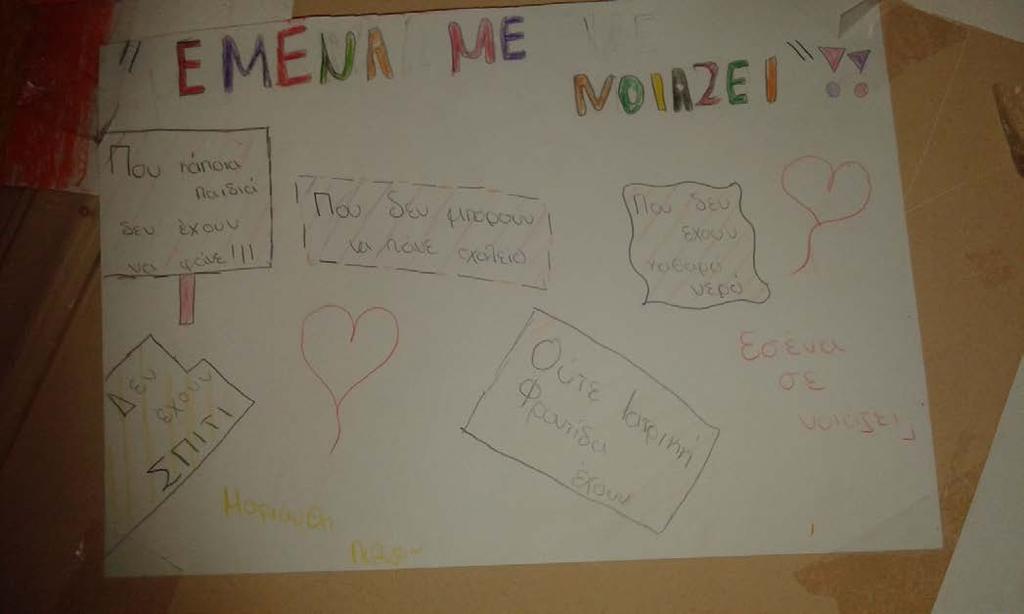 "ΕΜΕΝΑ ΜΕ
ΝΟΙΑΖΕΙ"!!
Που κάποια
παιδιά
δεν έχουν
να φάνε!!!
Που δεν μπορουν
να πάνε σχολείο
Που δεν
εχουν
καθαρό
νερό
Δεν
έχουν
ΣΠΙΤΙ
Ούτε Ιατρική
Φροντίδα
έχουν
Εσένα
σε
νοιάζει;